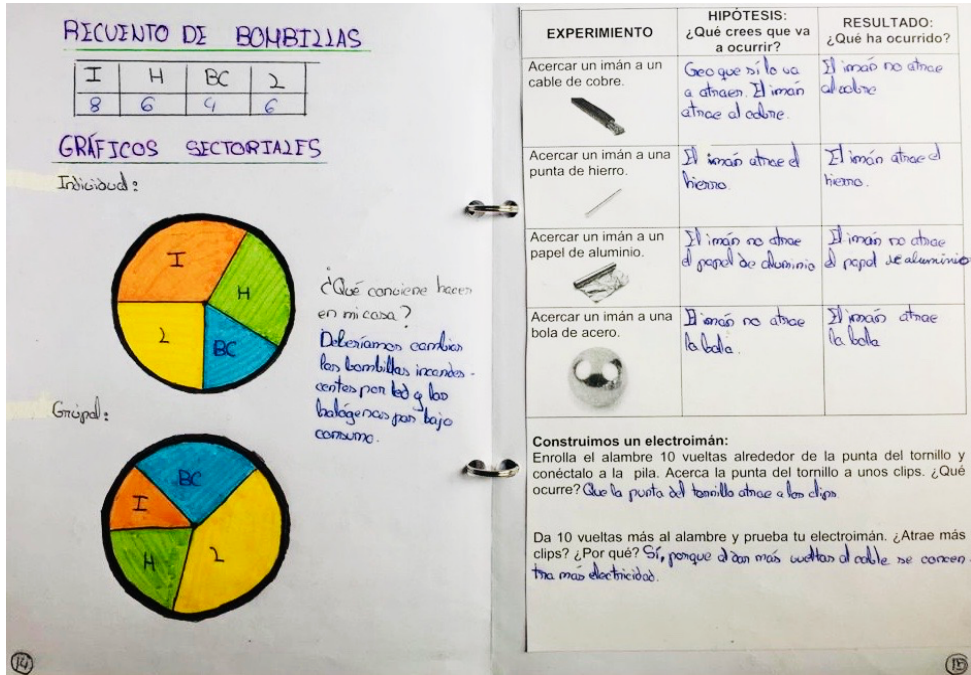 RECUENTO DE BOMBILLAS
I H BC L
8 6 4 6
GRÁFICOS SECTORIALES
Individual:
I
H
L
BC
¿Qué conviene hacer
en mi casa?
Deberíamos cambiar
las bombillas incandes-
centes por led y las
halógenas por bajo
consumo.
Grupal:
BC
I
H
L
14
EXPERIMENTO
HIPÓTESIS:
¿Qué crees que va
a ocurrir?
RESULTADO:
¿Qué ha ocurrido?
Acercar un imán a un
cable de cobre.
Creo que sí lo va
a atraer. El imán
atrae al cobre.
El imán no atrae
al cobre
Acercar un imán a una
punta de hierro.
El imán atrae el
hierro.
El imán atrae el
hierro.
Acercar un imán a un
papel de aluminio.
El imán no atrae
el papel de aluminio
El imán no atrae
el papel de aluminio
Acercar un imán a una
bola de acero.
El imán no atrae
la bola.
El imán atrae
la bola
Construimos un electroimán:
Enrolla el alambre 10 vueltas alrededor de la punta del tornillo y
conéctalo a la pila. Acerca la punta del tornillo a unos clips. ¿Qué
ocurre? Que la punta del tornillo atrae a los clips.
Da 10 vueltas más al alambre y prueba tu electroimán. ¿Atrae más
clips? ¿Por qué? Sí, porque al dar más vueltas al cable se concen-
tra más electricidad.
15